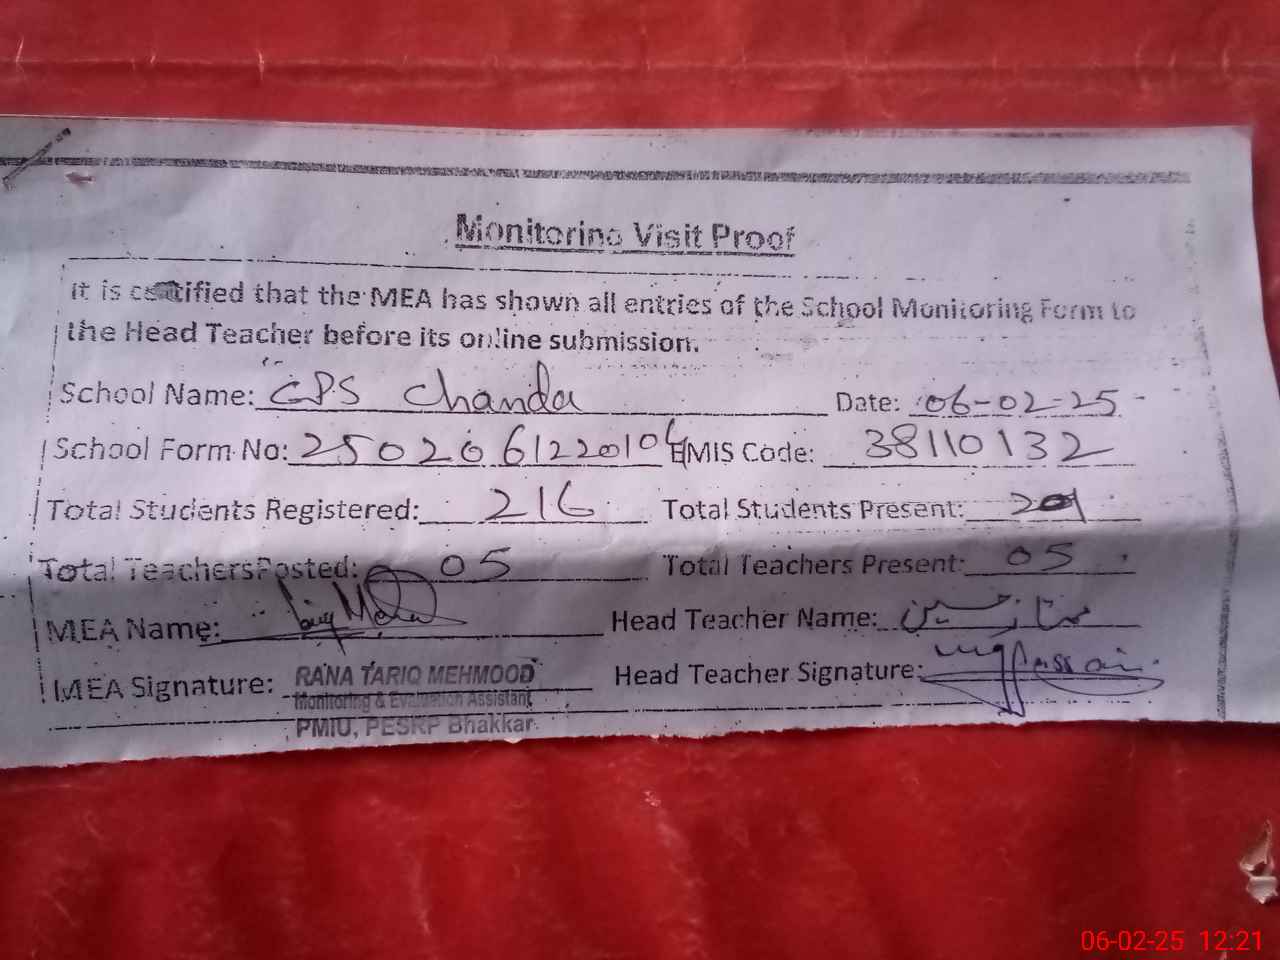 Monitoring Visit Proof
It is certified that the MEA has shown all entries of the School Monitoring Form to
the Head Teacher before its online submission.
School Name: GPS Chanda Date: 06-02-25
School Form No: 250206122010 EMIS Code: 38110132
Total Students Registered: 216 Total Students Present:
Total Teachers Posted: 05 Total Teachers Present: 05
MEA Name: Head Teacher Name: ممتاز حسین
MEA Signature: RANA TARIQ MEHMOOD Head Teacher Signature: Hussain
Monitoring & Evaluation Assistant
PMIU, PESRP Bhakkar.
06-02-25 12:21